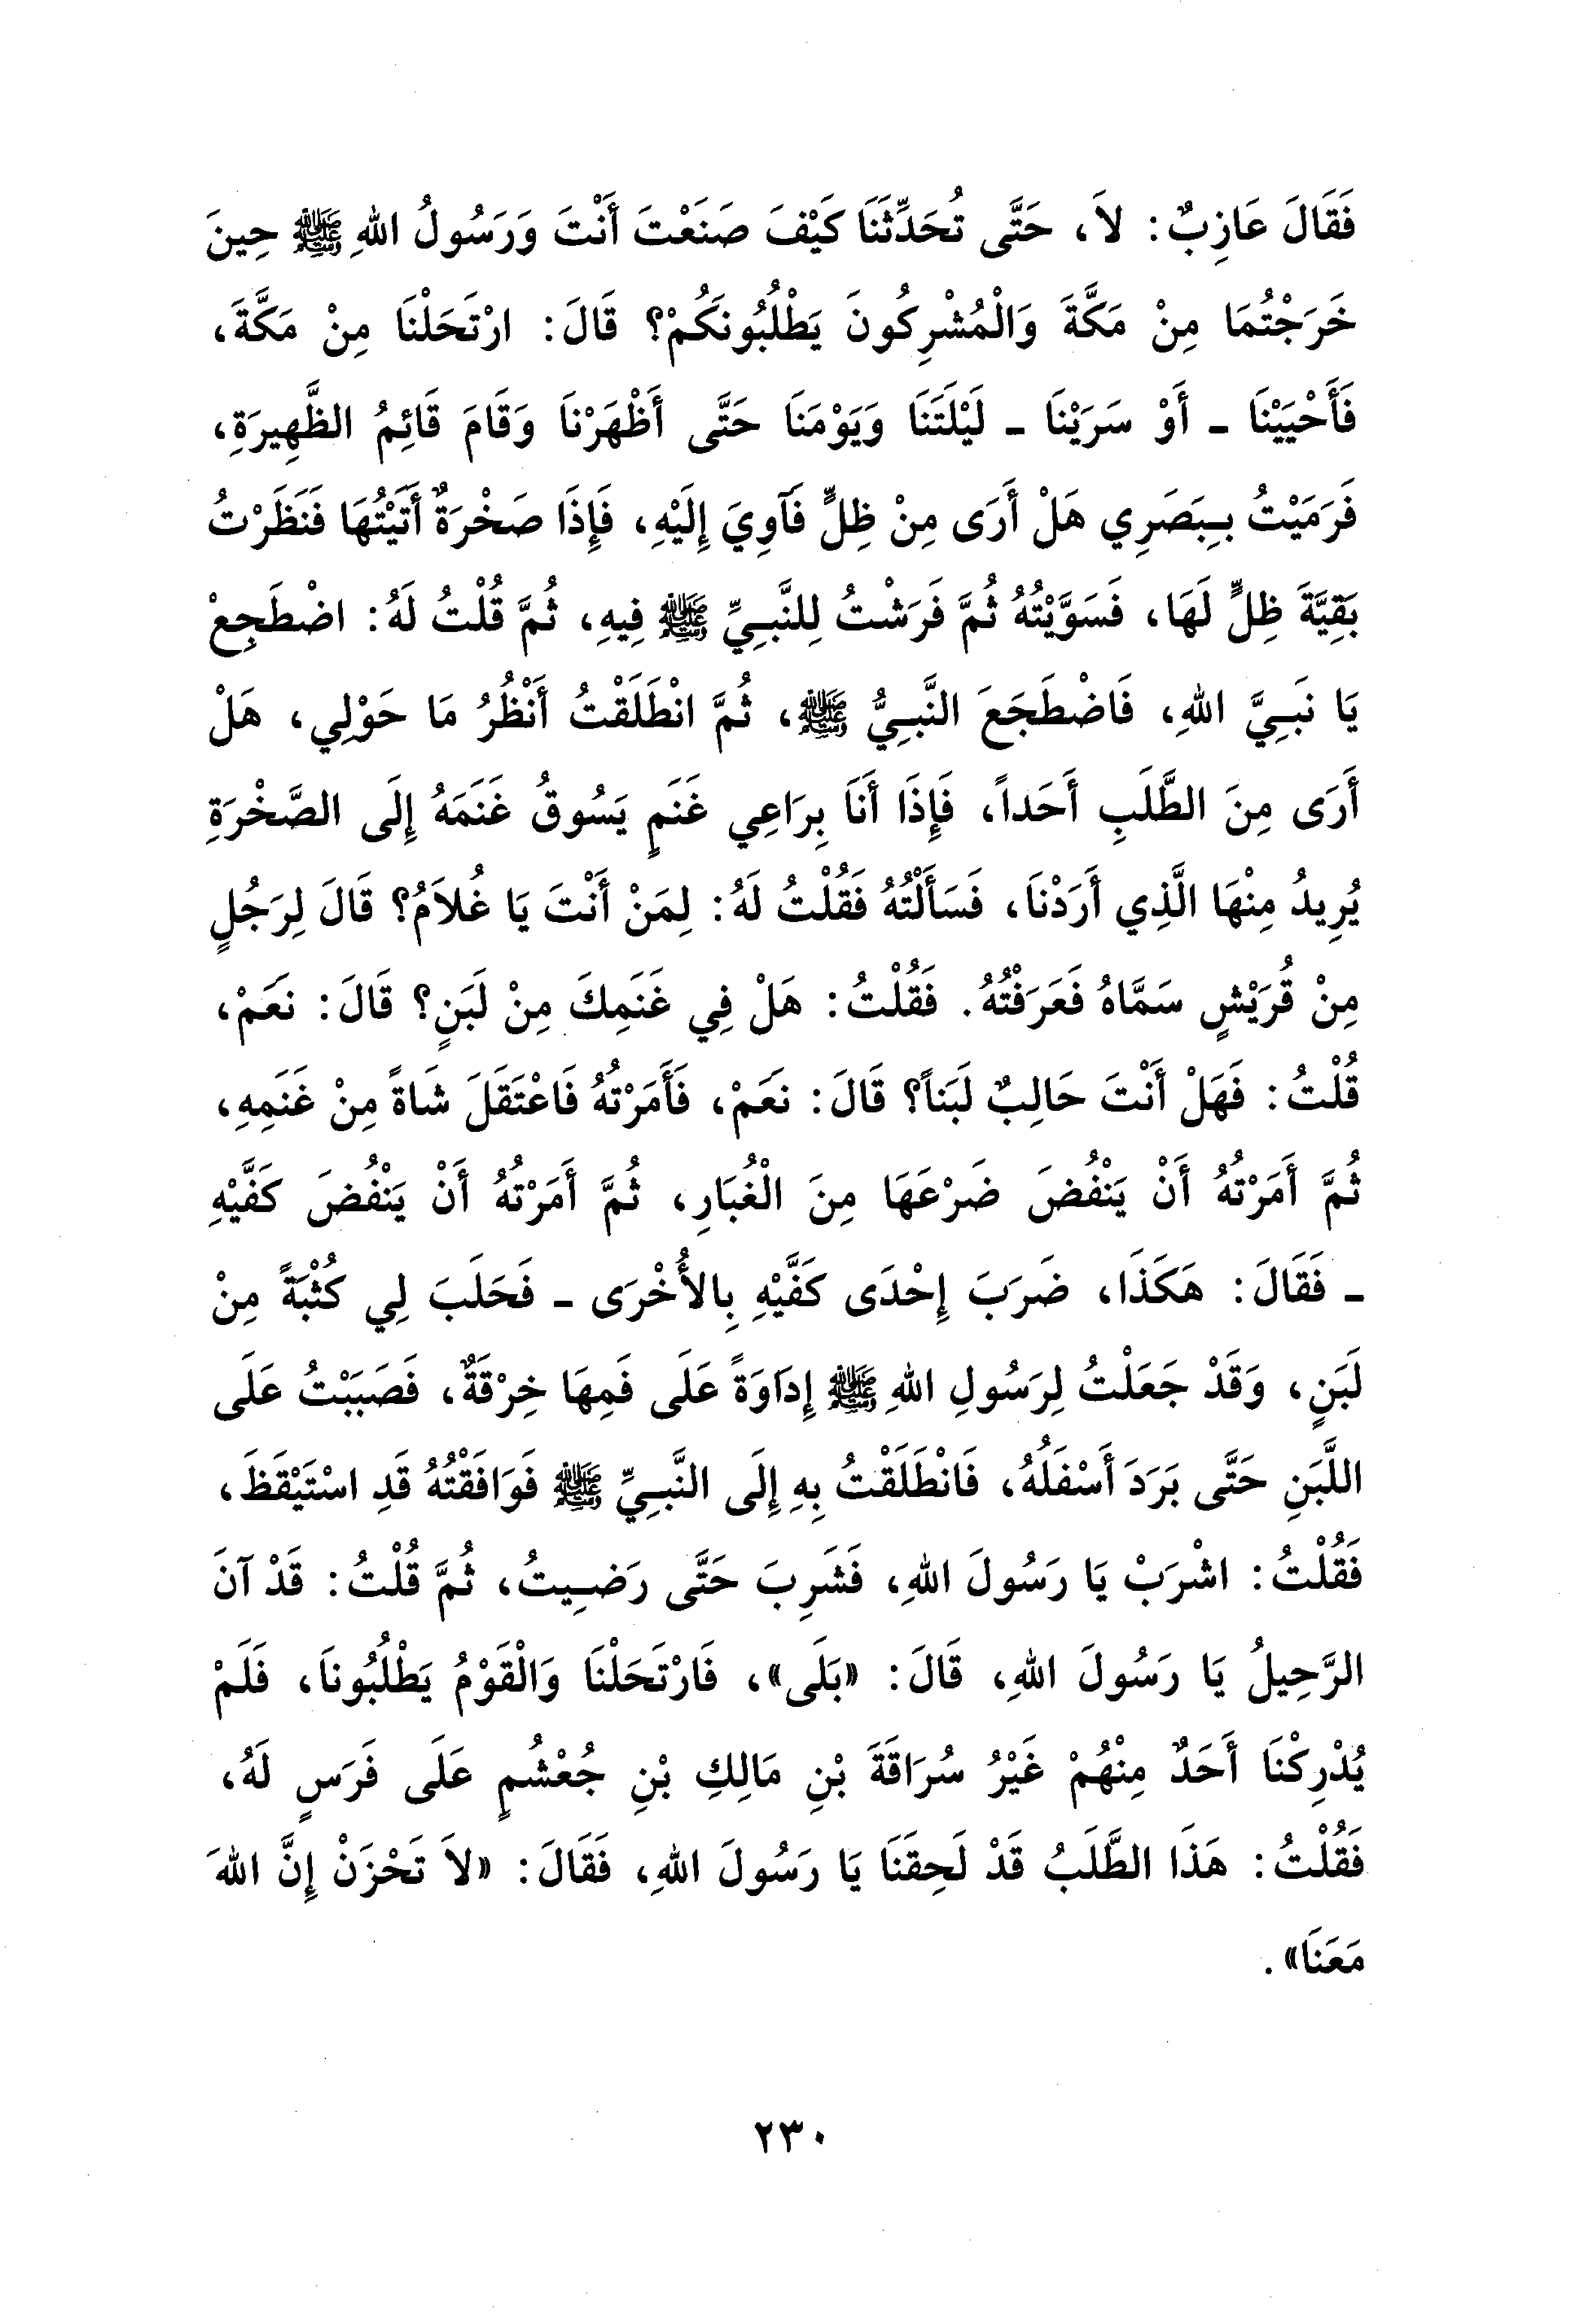 فَقَالَ عَازِبٌ: لاَ، حَتَّى تُحَدِّثَنَا كَيْفَ صَنَعْتَ أَنْتَ وَرَسُولُ اللهِ ﷺ حِينَ
خَرَجْتُمَا مِنْ مَكَّةَ وَالْمُشْرِكُونَ يَطْلُبُونَكُمْ؟ قَالَ: ارْتَحَلْنَا مِنْ مَكَّةَ،
فَأَحْيَيْنَا ـ أَوْ سَرَيْنَا ـ لَيْلَتَنَا وَيَوْمَنَا حَتَّى أَظْهَرْنَا وَقَامَ قَائِمُ الظَّهِيرَةِ،
فَرَمَيْتُ بِبَصَرِي هَلْ أَرَى مِنْ ظِلٍّ فَآوِيَ إِلَيْهِ، فَإِذَا صَخْرَةٌ أَتَيْتُهَا فَنَظَرْتُ
بَقِيَّةَ ظِلٍّ لَهَا، فَسَوَّيْتُهُ ثُمَّ فَرَشْتُ لِلنَّبِيِّ ﷺ فِيهِ، ثُمَّ قُلْتُ لَهُ: اضْطَجِعْ
يَا نَبِيَّ اللهِ، فَاضْطَجَعَ النَّبِيُّ ﷺ، ثُمَّ انْطَلَقْتُ أَنْظُرُ مَا حَوْلِي، هَلْ
أَرَى مِنَ الطَّلَبِ أَحَداً، فَإِذَا أَنَا بِرَاعِي غَنَمٍ يَسُوقُ غَنَمَهُ إِلَى الصَّخْرَةِ
يُرِيدُ مِنْهَا الَّذِي أَرَدْنَا، فَسَأَلْتُهُ فَقُلْتُ لَهُ: لِمَنْ أَنْتَ يَا غُلاَمُ؟ قَالَ لِرَجُلٍ
مِنْ قُرَيْشٍ سَمَّاهُ فَعَرَفْتُهُ. فَقُلْتُ: هَلْ فِي غَنَمِكَ مِنْ لَبَنٍ؟ قَالَ: نَعَمْ،
قُلْتُ: فَهَلْ أَنْتَ حَالِبٌ لَبَناً؟ قَالَ: نَعَمْ، فَأَمَرْتُهُ فَاعْتَقَلَ شَاةً مِنْ غَنَمِهِ،
ثُمَّ أَمَرْتُهُ أَنْ يَنْفُضَ ضَرْعَهَا مِنَ الْغُبَارِ، ثُمَّ أَمَرْتُهُ أَنْ يَنْفُضَ كَفَّيْهِ
ـ فَقَالَ: هَكَذَا، ضَرَبَ إِحْدَى كَفَّيْهِ بِالأُخْرَى ـ فَحَلَبَ لِي كُثْبَةً مِنْ
لَبَنٍ، وَقَدْ جَعَلْتُ لِرَسُولِ اللهِ ﷺ إِدَاوَةً عَلَى فَمِهَا خِرْقَةٌ، فَصَبَبْتُ عَلَى
اللَّبَنِ حَتَّى بَرَدَ أَسْفَلُهُ، فَانْطَلَقْتُ بِهِ إِلَى النَّبِيِّ ﷺ فَوَافَقْتُهُ قَدِ اسْتَيْقَظَ،
فَقُلْتُ: اشْرَبْ يَا رَسُولَ اللهِ، فَشَرِبَ حَتَّى رَضِيتُ، ثُمَّ قُلْتُ: قَدْ آنَ
الرَّحِيلُ يَا رَسُولَ اللهِ، قَالَ: «بَلَى»، فَارْتَحَلْنَا وَالْقَوْمُ يَطْلُبُونَا، فَلَمْ
يُدْرِكْنَا أَحَدٌ مِنْهُمْ غَيْرُ سُرَاقَةَ بْنِ مَالِكِ بْنِ جُعْشُمٍ عَلَى فَرَسٍ لَهُ،
فَقُلْتُ: هَذَا الطَّلَبُ قَدْ لَحِقَنَا يَا رَسُولَ اللهِ، فَقَالَ: «لاَ تَحْزَنْ إِنَّ اللهَ
مَعَنَا».
٢٣٠